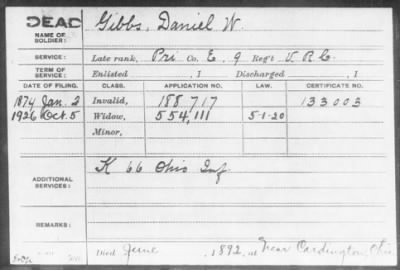 DEAD Gibbs, Daniel W.
NAME OF SOLDIER:
SERVICE: Late rank, Pri Co. E, 9 Reg't V.R.C.
TERM OF SERVICE: Enlisted , 1 Discharged , 1
DATE OF FILING. CLASS. APPLICATION NO. LAW. CERTIFICATE NO.
1874 Jan. 2 Invalid, 188,717 133003
1926 Oct. 5 Widow, 554,111 5-1-20
Minor,
ADDITIONAL SERVICES: K 66 Ohio Inf
REMARKS:
Died June , 1892, at Near Cardington, Ohio